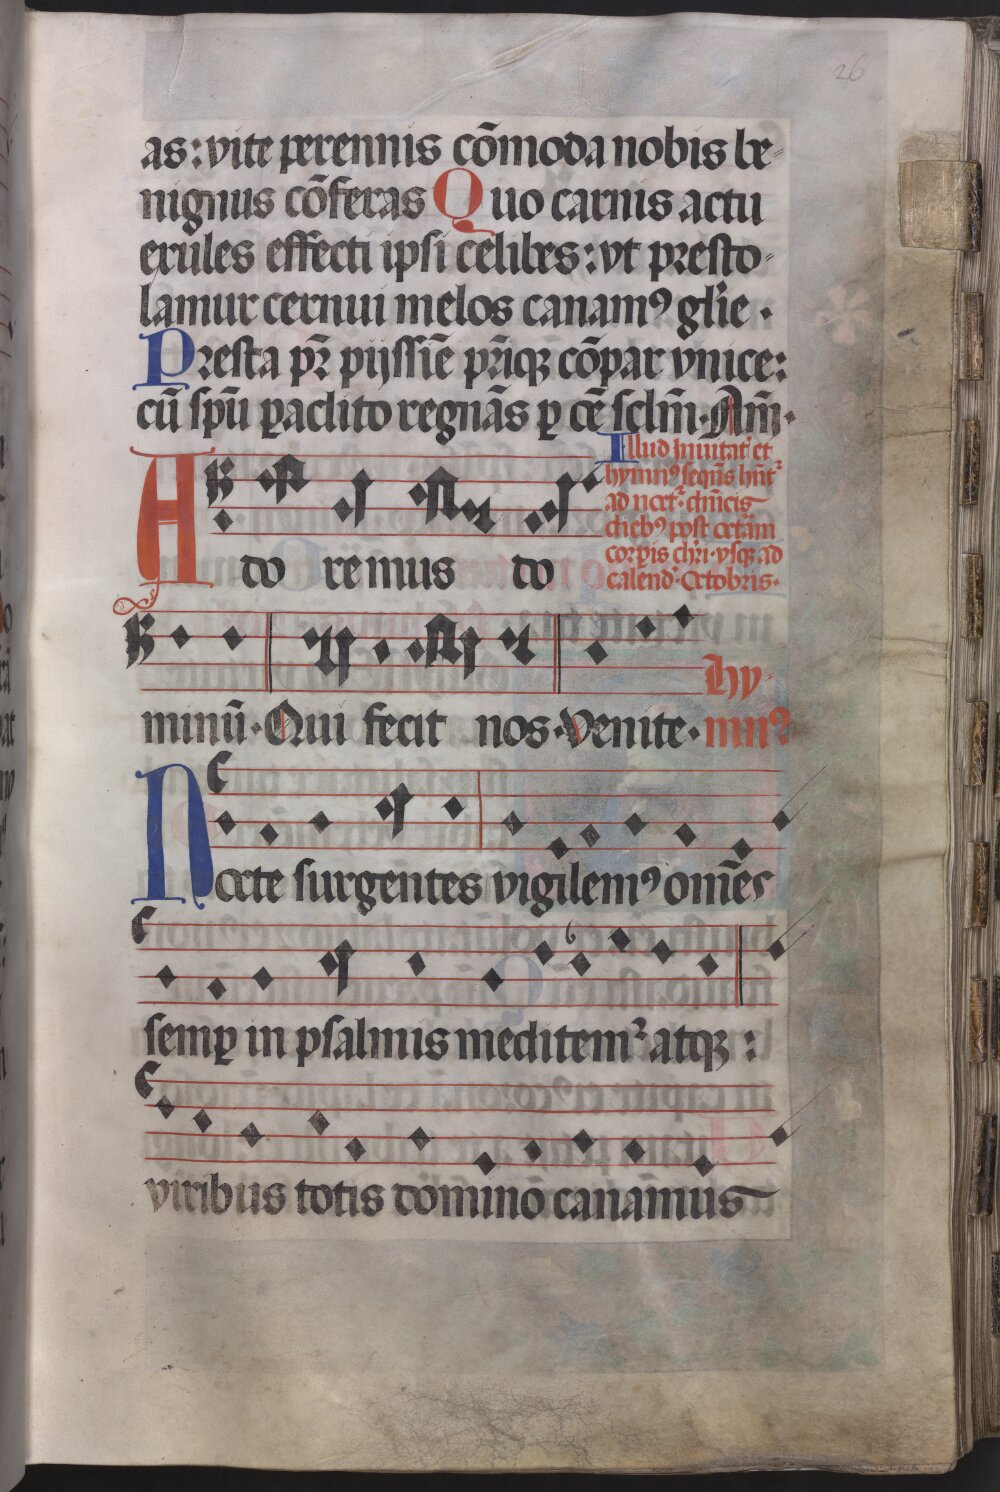 26
as: vite perennis cōmoda nobis be-
nignus cōferas Quo carnis actu
exules effecti ipsi celibes: vt presto-
lamur cernui melos canamꝰ glīe.
Presta pr̄ pijssīe pr̄iqꝫ cōpar vnice:
cū spū ꝑaclito regnās ꝑ oē sclm̄. Am̄.
Illud Inuitat' et
hymnꝰ sequēs hn̄t'
ad noct'. dn̄icis
diebꝰ post octām
corpis chri. vsqꝫ ad
calend'. Octobris.
Adoremus do
minū. Qui fecit nos. Venite. hy-
mnꝰ
Nocte surgentes vigilemꝰ om̄es
semꝑ in psalmis meditem' atqꝫ:
viribus totis domino canamus